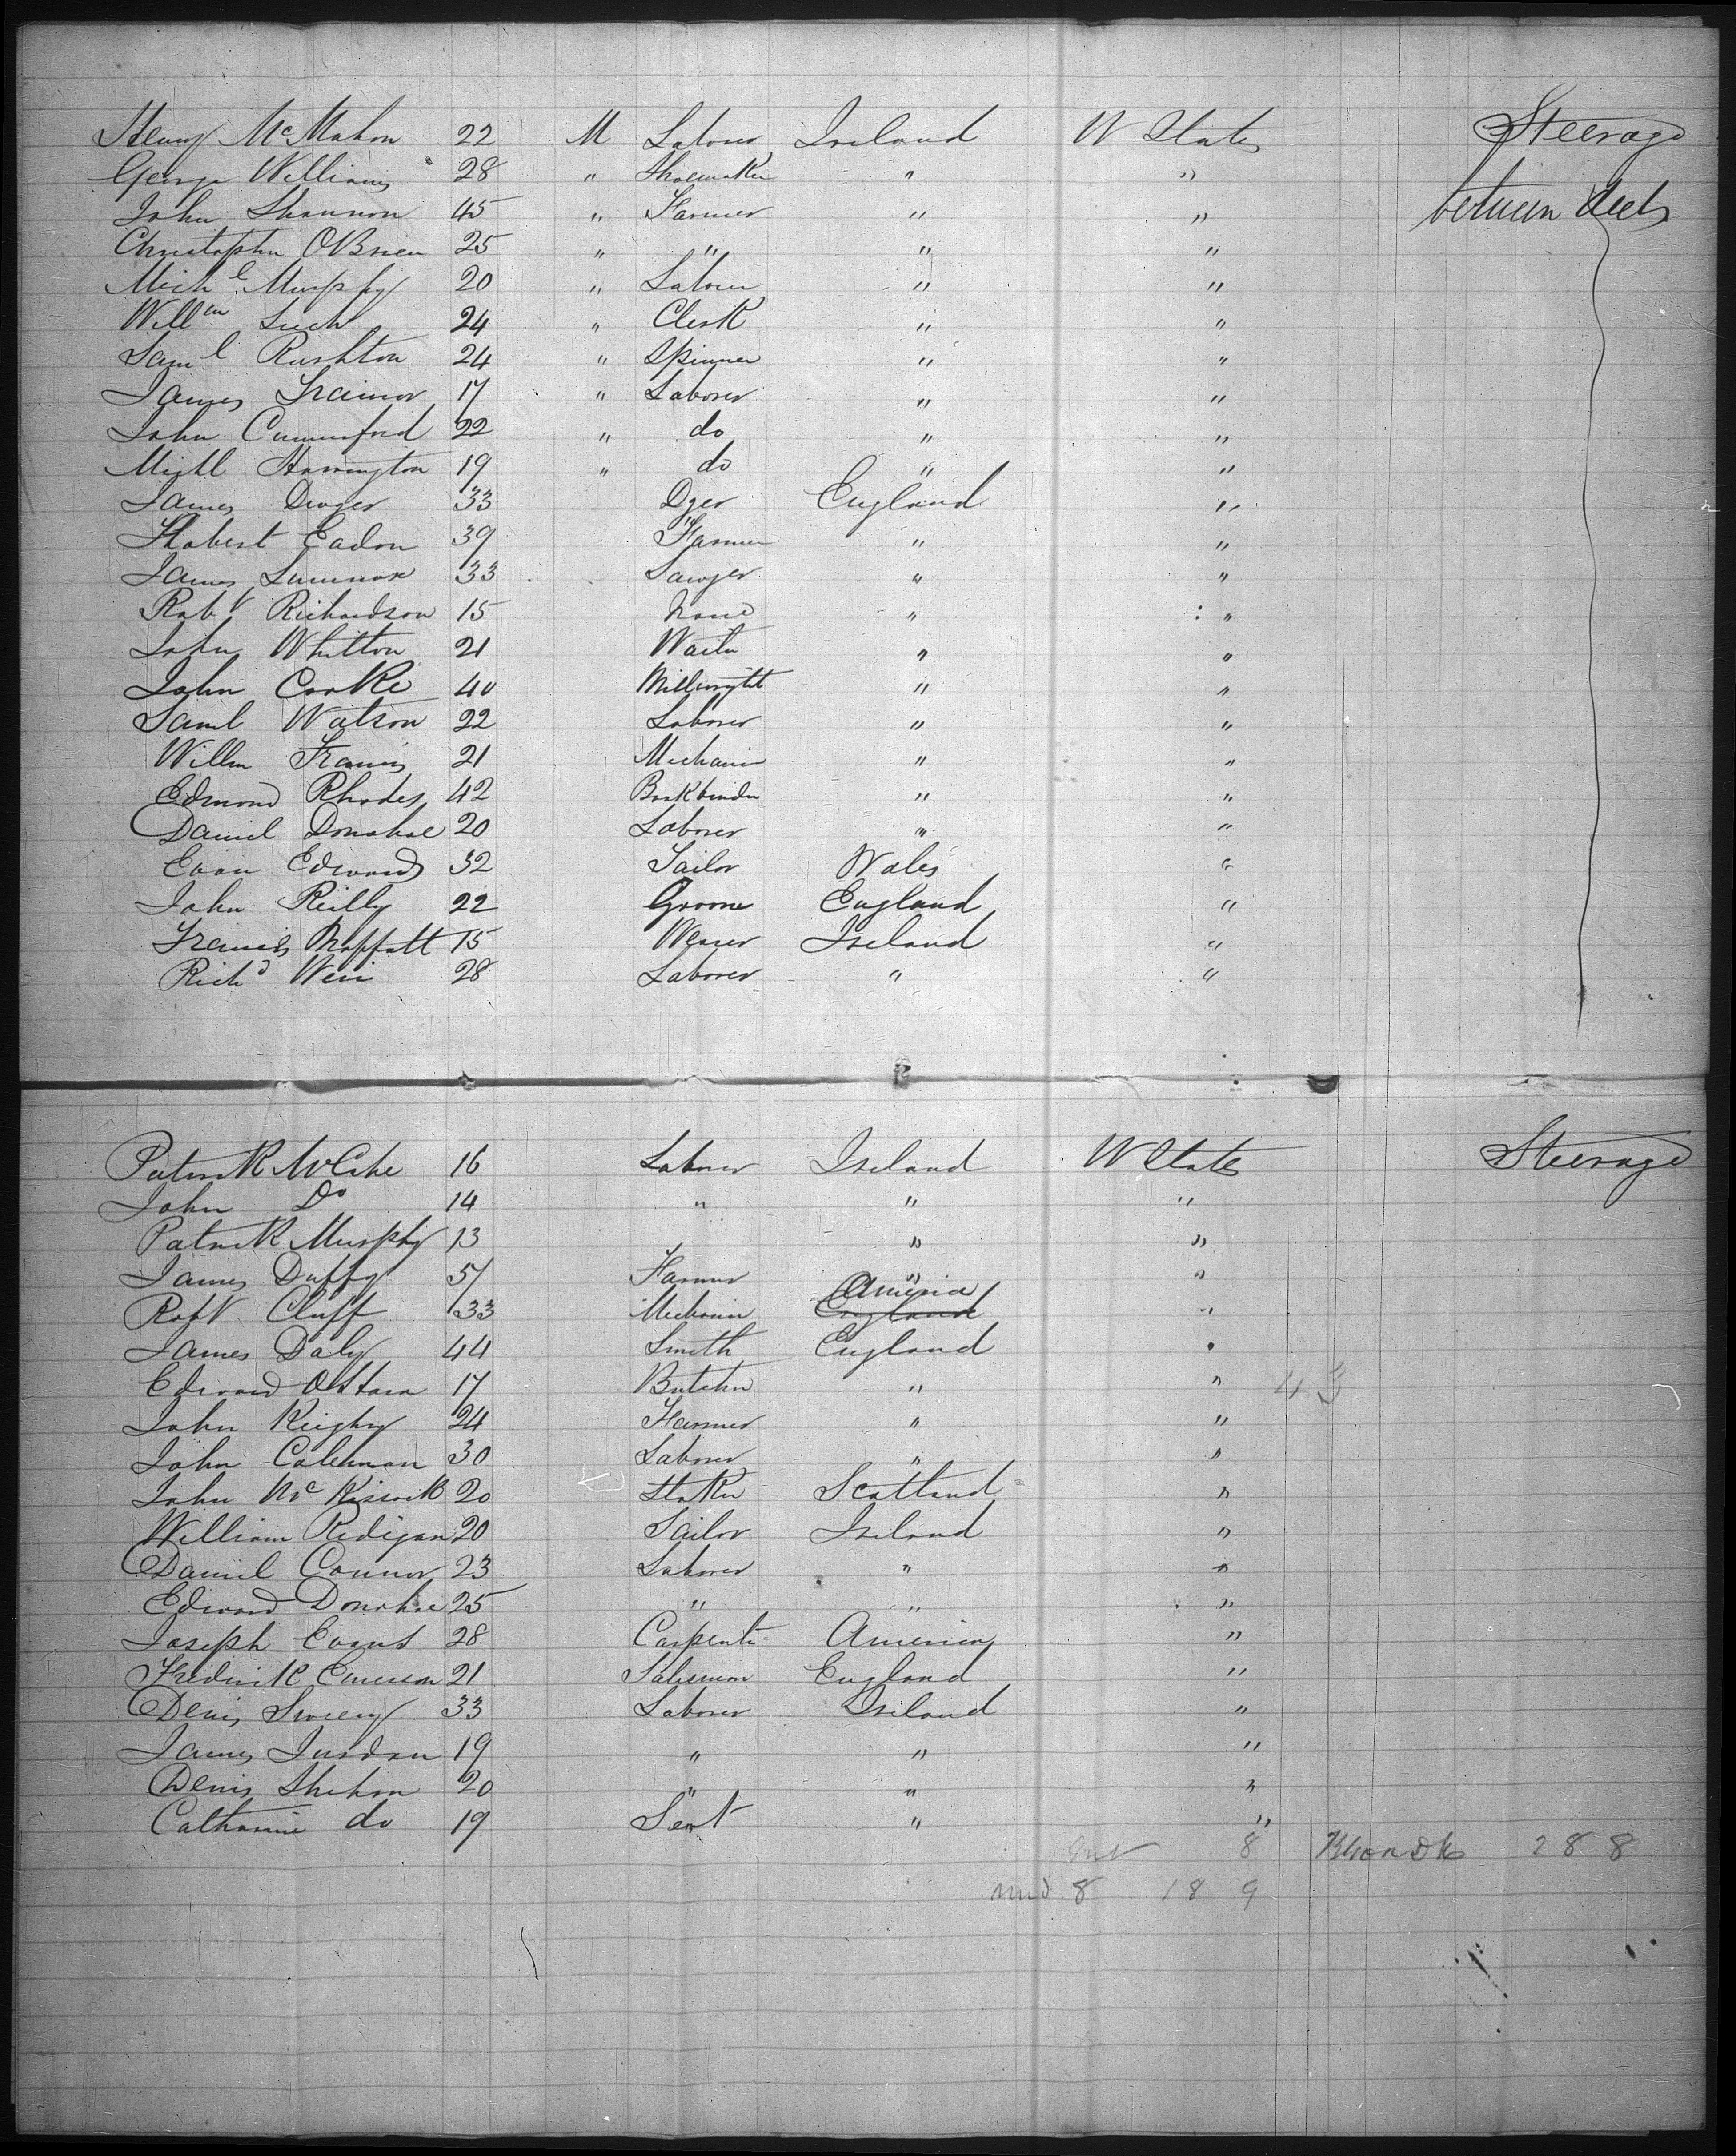 Henry McMahon 22 M Laborer Ireland U States Steerage
George Williams 28 " Shoemaker " " between decks
John Shannon 45 " Farmer " "
Christopher OBrien 25 " " " "
Michl Murphy 20 " Laborer " "
Willm 24 " Clerk " "
Saml Rushton 24 " Spinner " "
James Trainor 17 " Laborer " "
John Cummerford 22 " do " "
Michl Harrington 19 " do " "
James Dwyer 33 Dyer England "
Robert Eadon 39 Farmer " "
James 33 Sawyer " "
Robt Richardson 15 None " "
John Whitton 21 Waiter " "
John Cooke 40 Millwright " "
Saml Watson 22 Laborer " "
Willm Francis 21 Mechanic " "
Edmond Rhodes 42 Bookbinder " "
Daniel Donahoe 20 Laborer " "
Evan Edwards 32 Tailor Wales "
John Reilly 22 Groom England "
Francis Moffatt 15 Weaver Ireland "
Richd Weir 28 Laborer " "
Patrick McCabe 16 Laborer Ireland U States Steerage
John Do 14 " " "
Patrick Murphy 13 " "
James Duffy 57 Farmer " "
Robt Cluff 33 Mechanic America England "
James Daly 44 Smith England "
Edward OHara 17 Butcher " " 43
John 24 Farmer " "
John Coleman 30 Laborer " "
John Mc 20 Scotland "
William Redigan 20 Tailor Ireland "
Daniel Connor 23 Laborer " "
Edward Donahoe 25 " " "
Joseph Evans 28 Carpenter America "
Frederick Emerson 21 Salesman England "
Denis Sweeny 33 Laborer Ireland "
James Jordan 19 " " "
Denis Shehan 20 " " "
Catharine do 19 Servt " "
8 288
8 18 9